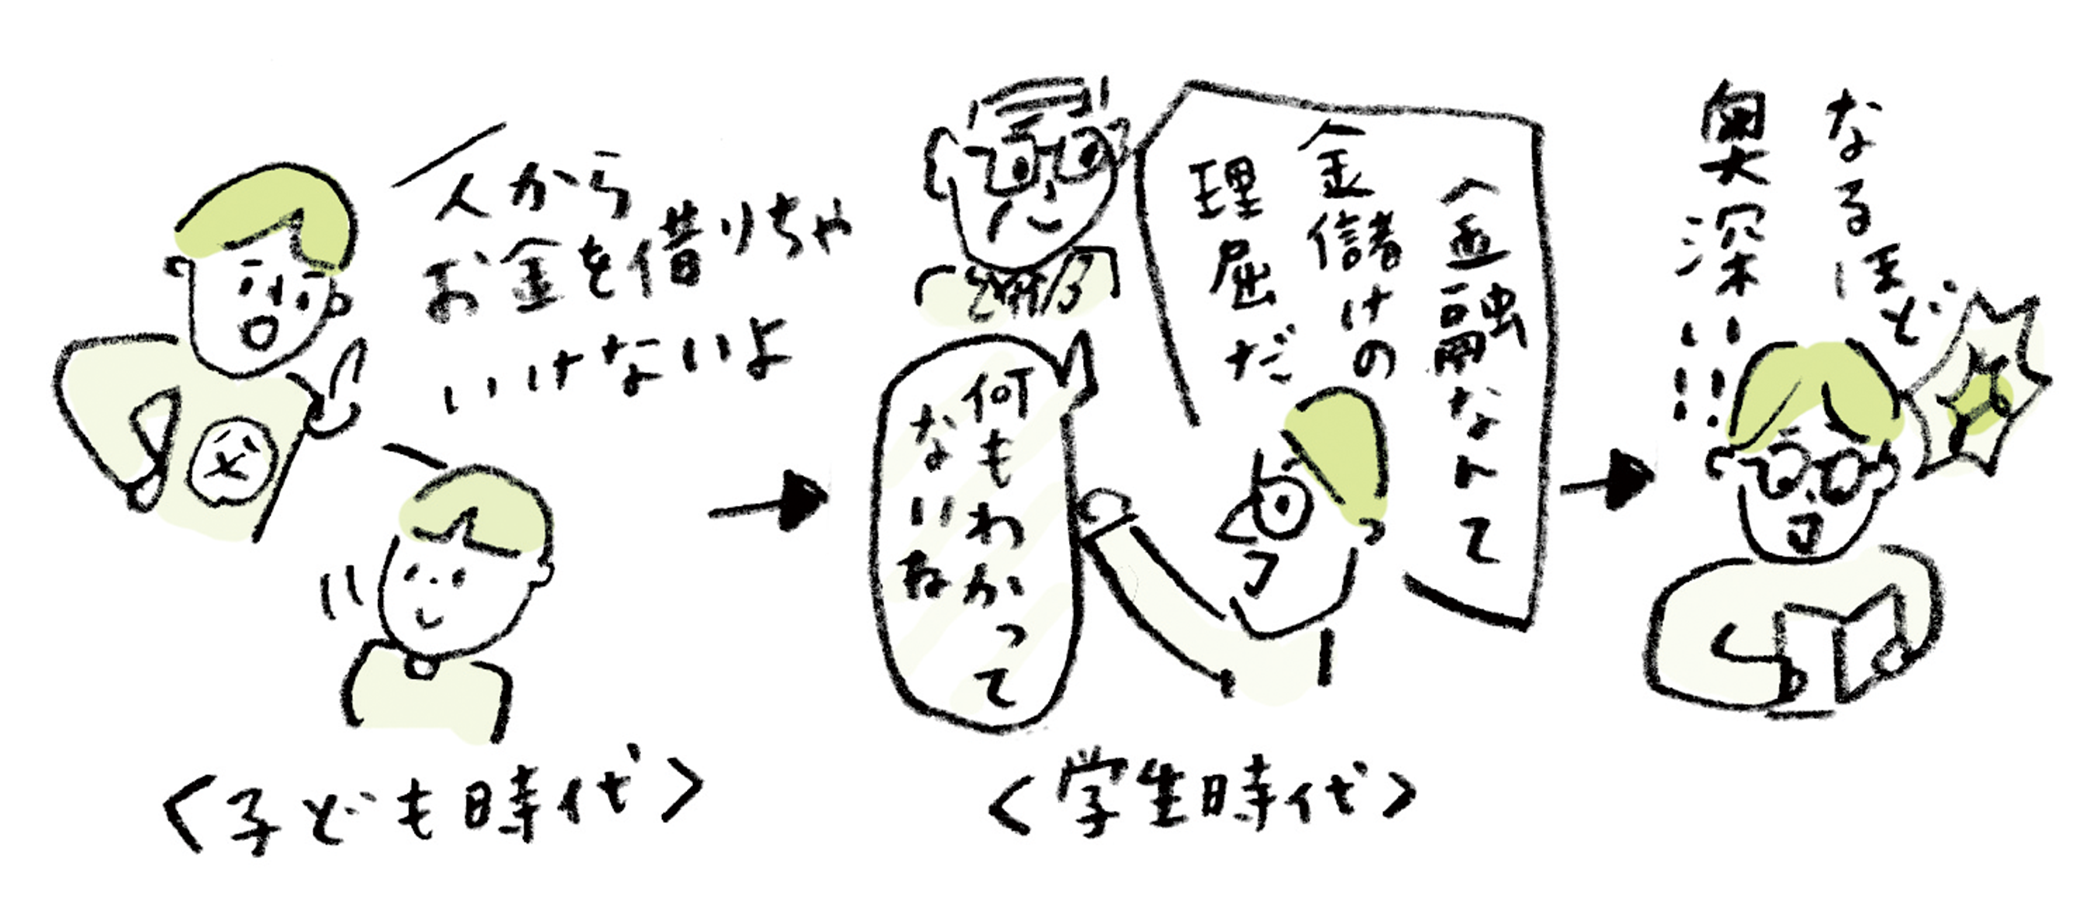 人から
お金を借りちゃ
いけないよ
父
<子ども時代>
金融なんて
金儲けの
理屈だ
何もわかって
ないな
<学生時代>
なるほど
奥深い!!